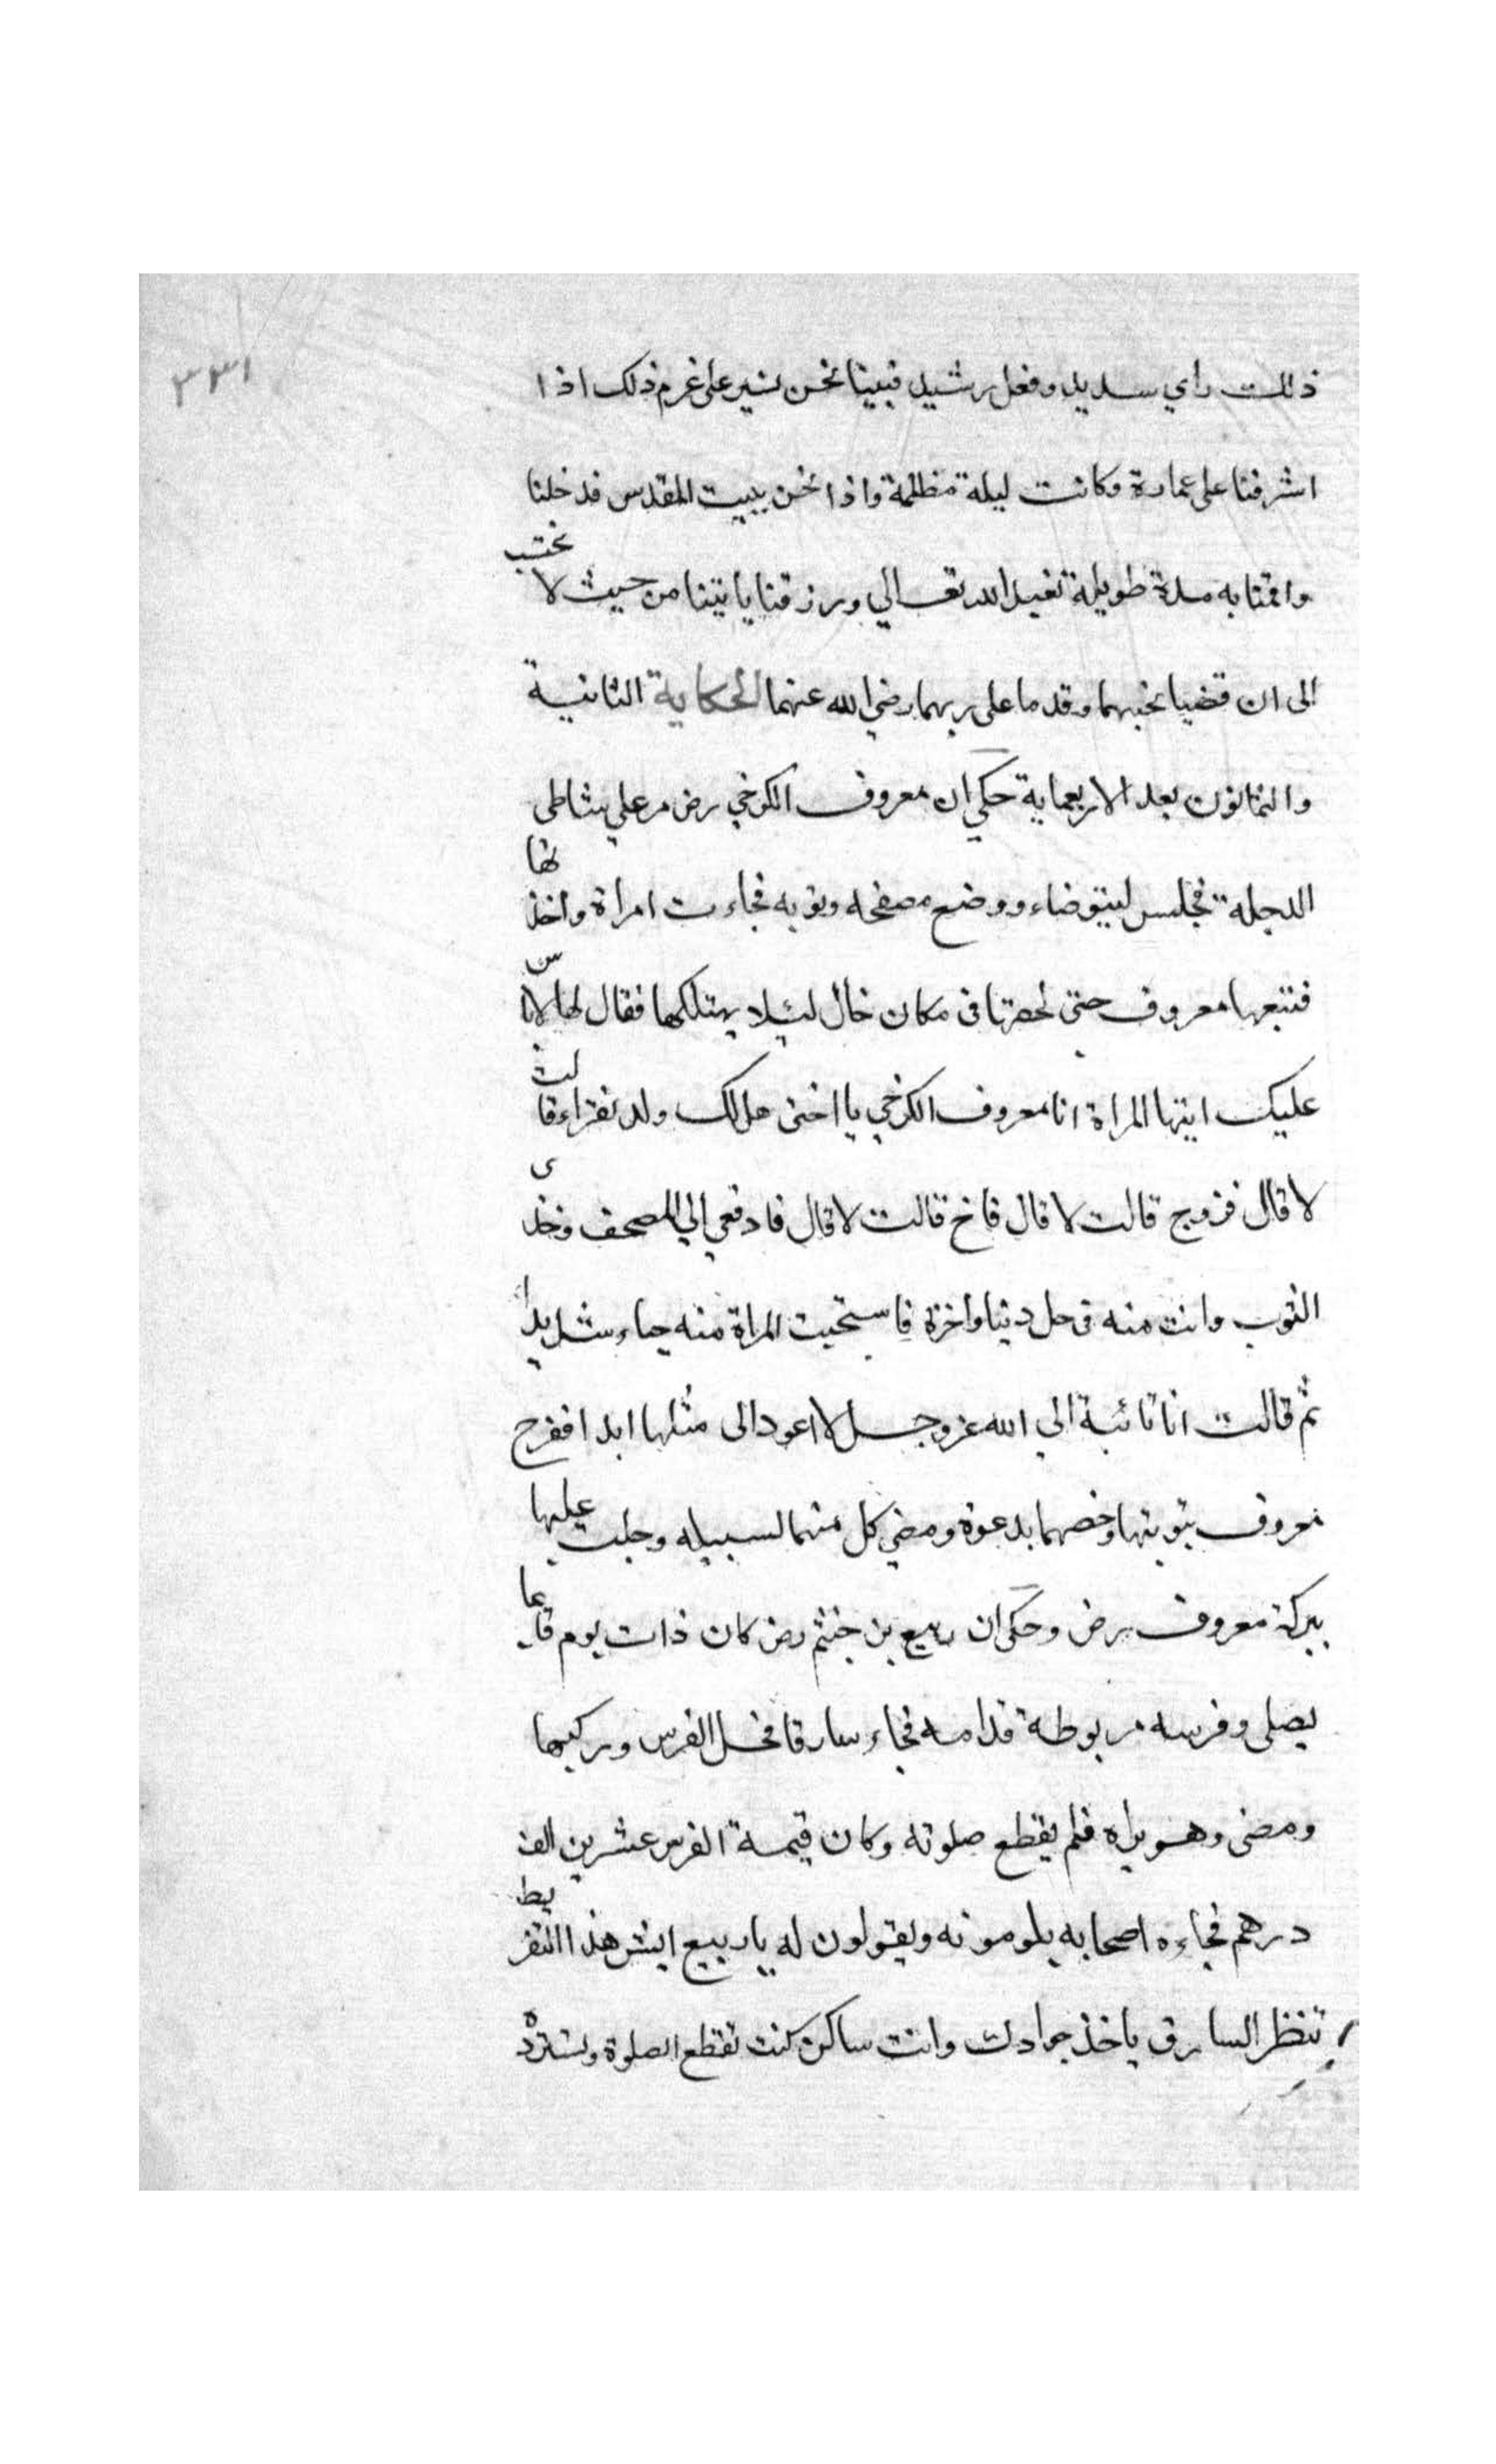 ٣٣١
ذلك راي سديد وفعل رشيد فبينا نحن نسير على غرم ذلك اذا
اشرفنا على عمارة وكانت ليلة مظلمة واذا نحن ببيت المقدس فدخلنا
واقمنا به مدة طويلة نعبد الله تعالي ورزقنا ياتينا من حيث لا نحتسب
الى ان قضيا نحبهما وقدما على ربهما رضي الله عنهما الحكاية الثانية
والثمانون بعد الاربعماية حكي ان معروف الكرخي رض مر علي شاطى
الدجلة فجلس ليتوضاء ووضع مصفحه وثوبه فجاءت امراة واخذتها
فتبعها معروف حتى لحقها فى مكان خال ليئلا يهتلكها فقال لها لا باس
عليك ايتها المراة انا معروف الكرخي يا اختى هل لك ولد يقراء قالت
لا قال فزوج قالت لا قال فاخ قالت لا قال فادفعي الي المصحف وخذى
الثوب وانت منه فى حل دنيا واخرة فاستحيت المراة منه حياء شديدا
ثم قالت انا تائبة الي الله عز وجل لا اعود الى مثلها ابدا ففرح
معروف بتوبتها وخصهما بدعوة ومضي كل منهما لسبيله وجلت عليها
ببركة معروف رض وحكى ان ربيع بن خيثم رض كان ذات يوم قايما
يصلى وفرسه مربوطة قدامه فجاء سارقا فحل الفرس وركبها
ومضى وهو يراه فلم يقطع صلوته وكان قيمة الفرس عشرين الف
درهم فجاءه اصحابه يلومونه ويقولون له يا ربيع ايش هذا التفريط
تنظر السارق ياخذ جوادك وانت ساكن كنت تقطع الصلوة وتسترده